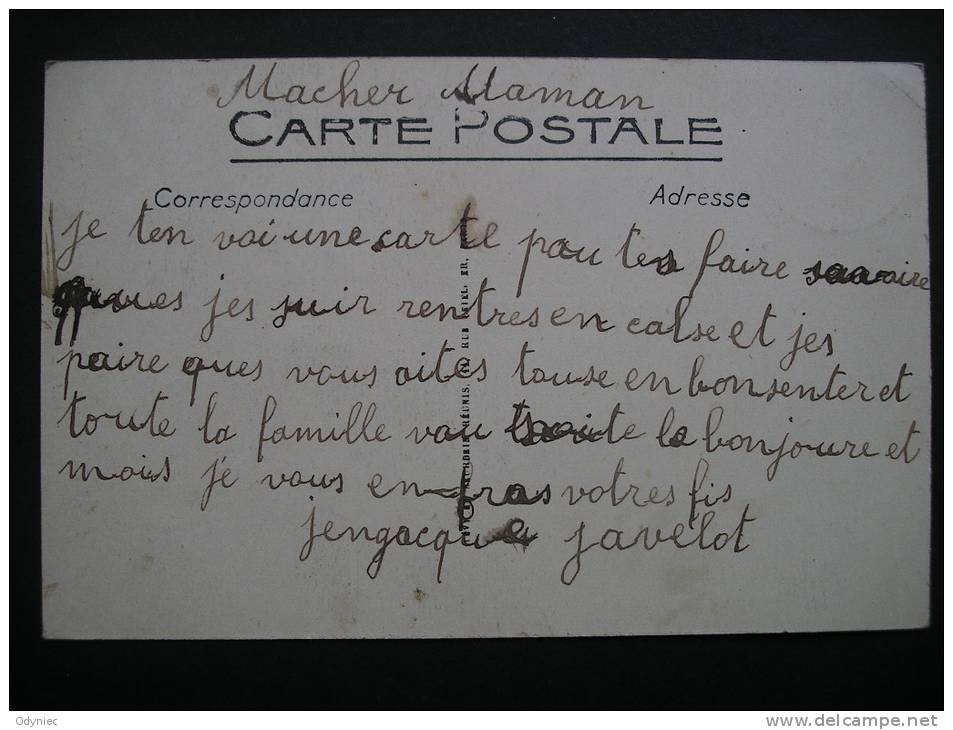 Macher Maman
CARTE POSTALE
Correspondance
Adresse
je ten voi une carte pou tes faire savoire
ques jes suir rentres en calse et jes
paire ques vous aites touse en bonsenter et
toute la famille vou le bonjoure et
mois je vous en bras votres fis
jengacque javelot
RÉUNIS.
Odyniec
www.delcampe.net